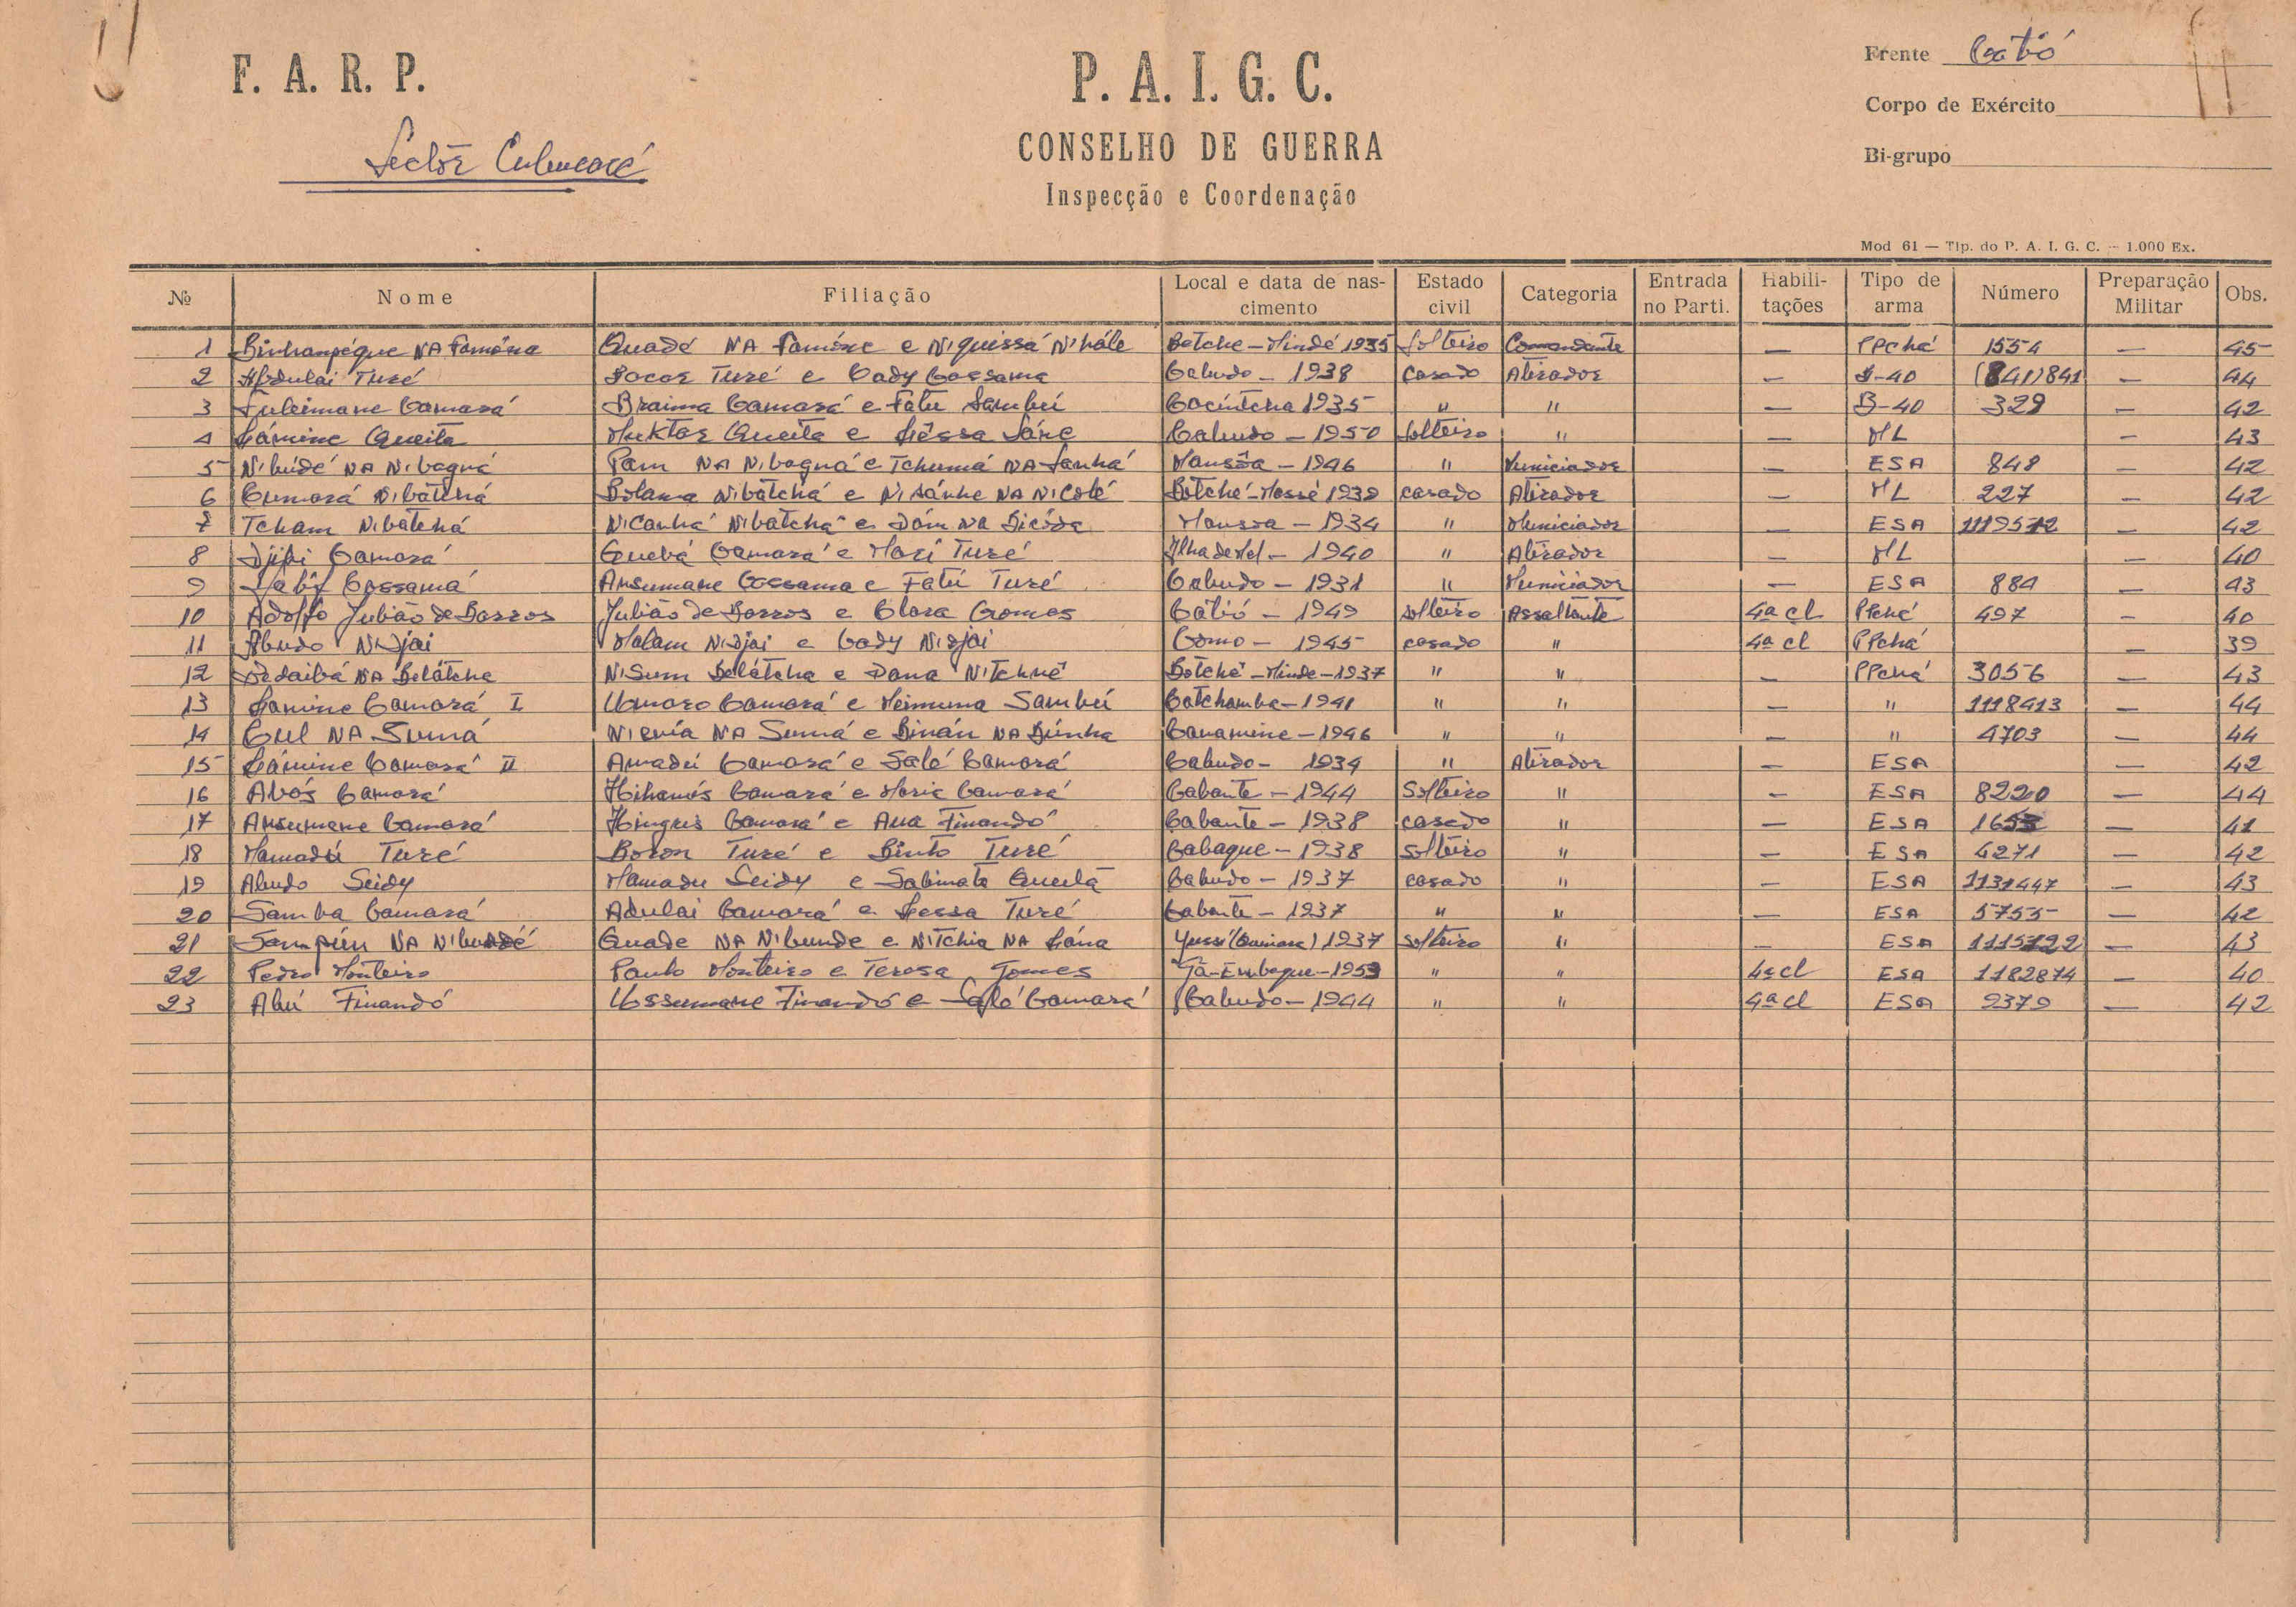 F. A. R. P.
Sectôr Cubucaré
P. A. I. G. C.
CONSELHO DE GUERRA
Inspecção e Coordenação
Frente Catió
Corpo de Exército
Bi-grupo
Mod 61 — Tip. do P. A. I. G. C. — 1.000 Ex.
№ Nome Filiação Local e data de nascimento Estado civil Categoria Entrada no Parti. Habilitações Tipo de arma Número Preparação Militar Obs.
1 NA Quadé NA e Niquissá Nihále Betche-Mindé 1935 Solteiro Comandante — PPchá 1554 — 45
2 Abdulai Turé Bocar Turé e Cady Cassama Cabudo - 1938 casado Atirador — (841) 841 — 44
3 Suleimane Camará Braima Camará e Fatu Sambú Cacintcha 1935 " " — B-40 329 — 42
4 Lámine Queita Muktar Queita e Lêssa Sáne Cabudo - 1950 solteiro " — ML — 43
5 Nibúdé NA Nibagná Pam NA Nibagná e Tchumá NA Sanhá Mansôa - 1946 " Municiador — ESA 848 — 42
6 Cumará Nibátchá Bolama Nibátchá e NA Nicolé Botché-Messé casado Atirador — ML 227 — 42
7 Tcham Nibátchá Nicanhá Nibátchá e Dám NA Mansoa - 1934 " Municiador — ESA — 42
8 Djibi Camará Quebá Camará e Mari Turé Ilha de Mel - 1940 " Atirador — ML — 40
9 Cassamá Ansumane Cassama e Fatú Turé Cabudo - 1931 " Municiador — ESA 884 — 43
10 Adolfo Julião de Barros Julião de Barros e Clara Gomes Cátió - 1949 solteiro Assaltante 4ª cl PPchá 497 — 40
11 Abudo Nidjai Malam Nidjai e Cady Nidjai Como - 1945 casado " 4ª cl PPchá — 39
12 NA Belátcha Nisum Belátcha e Dana Nitchué Botché-Minde-1937 " " — PPchá 3056 — 43
13 Lamine Camará I Umaro Camará e Meimuna Sambú Catchamba-1941 " " — " 1118413 — 44
14 Cul NA Sumá NA Sumá e Binán NA Búnha Canamine-1946 " " — " 4703 — 44
15 Lámine Camará II Amadú Camará e Saló Camará Cabudo - 1934 " Atirador — ESA — 42
16 Abás Camará Camará e Maria Camará Cabante - 1944 Solteiro " — ESA 8220 — 44
17 Ansumane Camará Camará e Aua Finandó Cabante - 1938 casado " — ESA — 41
18 Mamadú Turé Boron Turé e Binto Turé Cabaque - 1938 solteiro " — ESA 4271 — 42
19 Abudo Seidy Mamadu Seidy e Sabimata Queitã Cabudo - 1937 casado " — ESA 1131447 — 43
20 Samba Camará Adulai Camará e Lessa Turé Cabante - 1937 " " — ESA 5755 — 42
21 Sampún NA Nibundé Quade NA Nibunde e Nitchia NA Lána Yussi (Quinara) 1937 solteiro " — ESA 1115122 — 43
22 Pedro Monteiro Paulo Monteiro e Teresa Gomes Gã-Embaque-1953 " " 4ª cl ESA 1182874 — 40
23 Abú Finandó Ussumane Finandó e Saló Camará Cabudo - 1944 " " 4ª cl ESA 9379 — 42